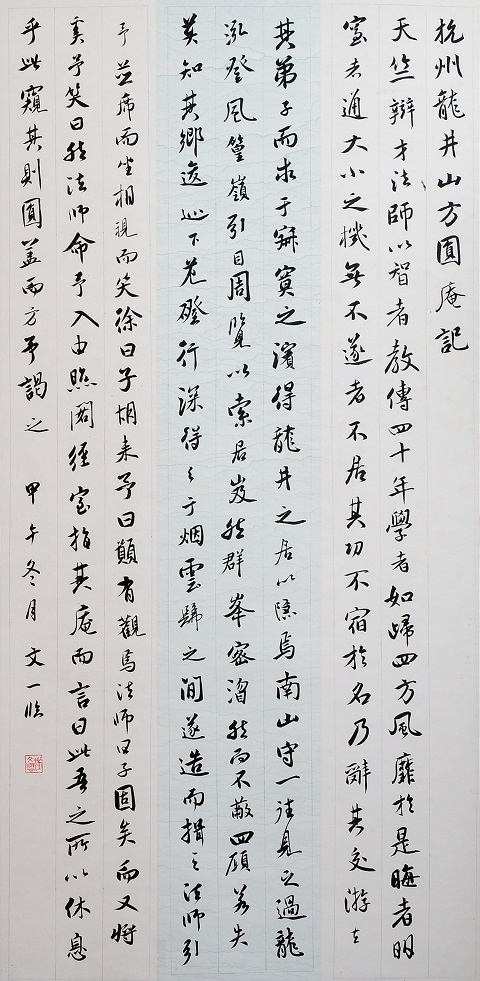 杭州龍井山方圓庵記
天竺辯才法師以智者教傳四十年學者如歸四方風靡於是晦者明
窒者通大小之機無不遂者不居其功不宿於名乃辭其交游去
其弟子而求于寂寞之濱得龍井之居以隱焉南山守一往見之過龍
泓登風篁嶺引目周覽以索居岌然群峯密渃然而不蔽四顧若失
莫知其鄉逡巡下危磴行深得之于烟雲髣之間遂造而揖之法師引
予並席而坐相視而笑徐曰子胡來予曰願有觀焉法師曰子固矣而又將
奚予笑曰然法師命予入由照閣經室指其庵而言曰此吾之所以休息
乎此窺其則圓蓋而方予謁之 甲午冬月 文一臨